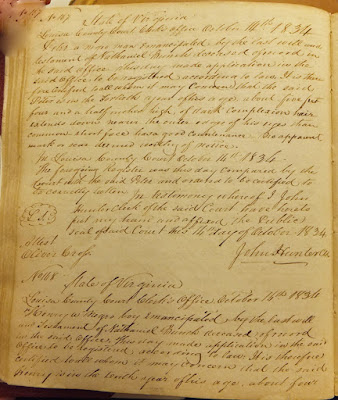 No 167 No 167 State of Virginia
Louisa County Court Clerks office October 14th 1834
Peter a man emancipated by the last will and
testament of Nathaniel Bunch deceased of record in
the said office, this day made application in the
said office to be registered according to law. It is there
fore certified to all whom it may Concern that the said
Peter is in the year of his age, about five feet
four and a half inches high, of black Complexion hair
extends down nearer the outer edges of his eyes than
common short face has a good Countenance no apparent
mark or scar deemed worthy of notice
In Louisa County Court October 14th 1834.
The foregoing Register was this day compared by the
Court with the said Peter and ordered to be certified, to
be correctly taken In testimony whereof I John
Hunter clerk of the said Court have hereto
put my hand and affixed the Public
seal of said Court this 14 day of October 1834
John Hunter
Attest
No 168 State of Virginia
Louisa County Court Clerk's Office October 14th 1834
Henry a Negro boy emancipated by the last will
and Testament of Nathaniel Bunch deceased of record
in the said office this day made application in the said
office to be registered, according to law. It is therefore
certified to all whom it may concern that the said
Henry is in the tenth year of his age, about four